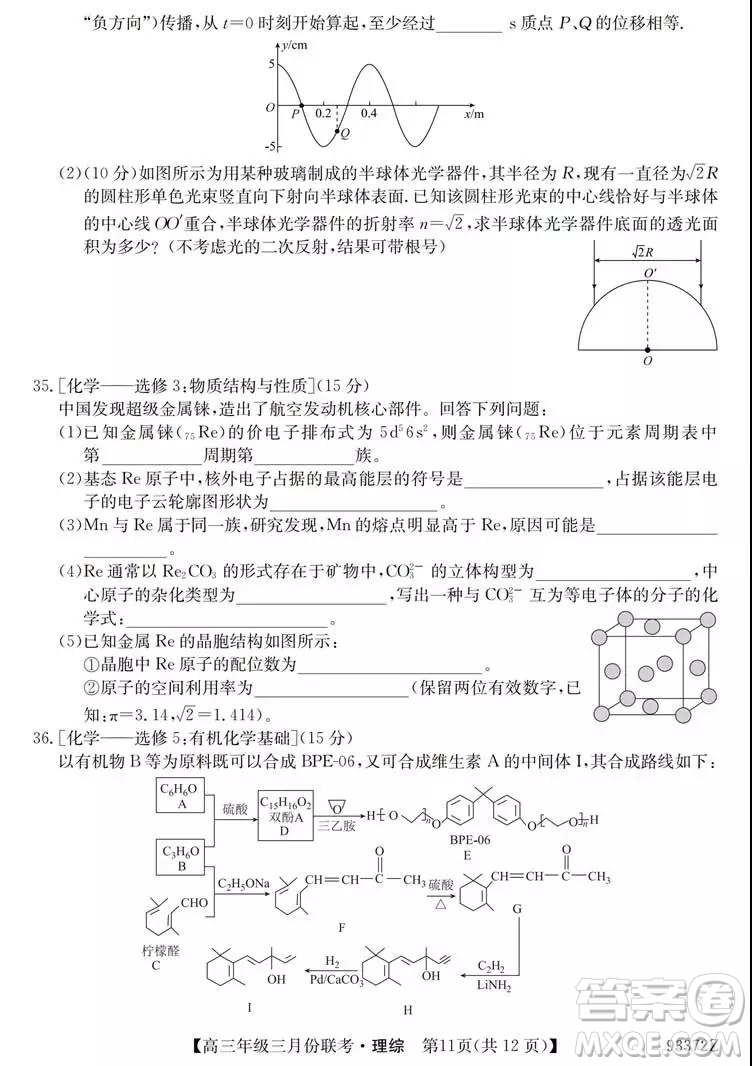 “负方向”)传播,从 t=0 时刻开始算起,至少经过________ s质点 P、Q 的位移相等.
y/cm
5
O
P
0.2
0.4
x/m
Q
-5
(2)(10 分)如图所示为用某种玻璃制成的半球体光学器件,其半径为 R,现有一直径为√2R
的圆柱形单色光束竖直向下射向半球体表面.已知该圆柱形光束的中心线恰好与半球体
的中心线 OO′重合,半球体光学器件的折射率 n=√2,求半球体光学器件底面的透光面
积为多少?(不考虑光的二次反射,结果可带根号)
√2R
O′
O
35.[化学——选修 3:物质结构与性质](15 分)
中国发现超级金属铼,造出了航空发动机核心部件。回答下列问题:
(1)已知金属铼(₇₅Re)的价电子排布式为 5d⁵6s²,则金属铼(₇₅Re)位于元素周期表中
第________周期第________族。
(2)基态 Re 原子中,核外电子占据的最高能层的符号是________,占据该能层电
子的电子云轮廓图形状为________。
(3)Mn 与 Re 属于同一族,研究发现,Mn 的熔点明显高于 Re,原因可能是________
________。
(4)Re 通常以 Re₂CO₃ 的形式存在于矿物中,CO₃²⁻ 的立体构型为________,中
心原子的杂化类型为________,写出一种与 CO₃²⁻ 互为等电子体的分子的化
学式:________。
(5)已知金属 Re 的晶胞结构如图所示:
①晶胞中 Re 原子的配位数为________。
②原子的空间利用率为________(保留两位有效数字,已
知:π=3.14,√2=1.414)。
36.[化学——选修 5:有机化学基础](15 分)
以有机物 B 等为原料既可以合成 BPE-06,又可合成维生素 A 的中间体 I,其合成路线如下:
C₆H₆O
A
硫酸
C₁₅H₁₆O₂
双酚A
D
O
三乙胺
H-[O n O O n O]-H
BPE-06
E
C₃H₆O
B
CHO
柠檬醛
C
C₂H₅ONa
CH=CH-C-CH₃
O
F
硫酸
△
CH=CH-C-CH₃
O
G
C₂H₂
LiNH₂
OH
H
H₂
Pd/CaCO₃
OH
I
【高三年级三月份联考·理综 第11页(共 12 页)】
93372Z
答案卷